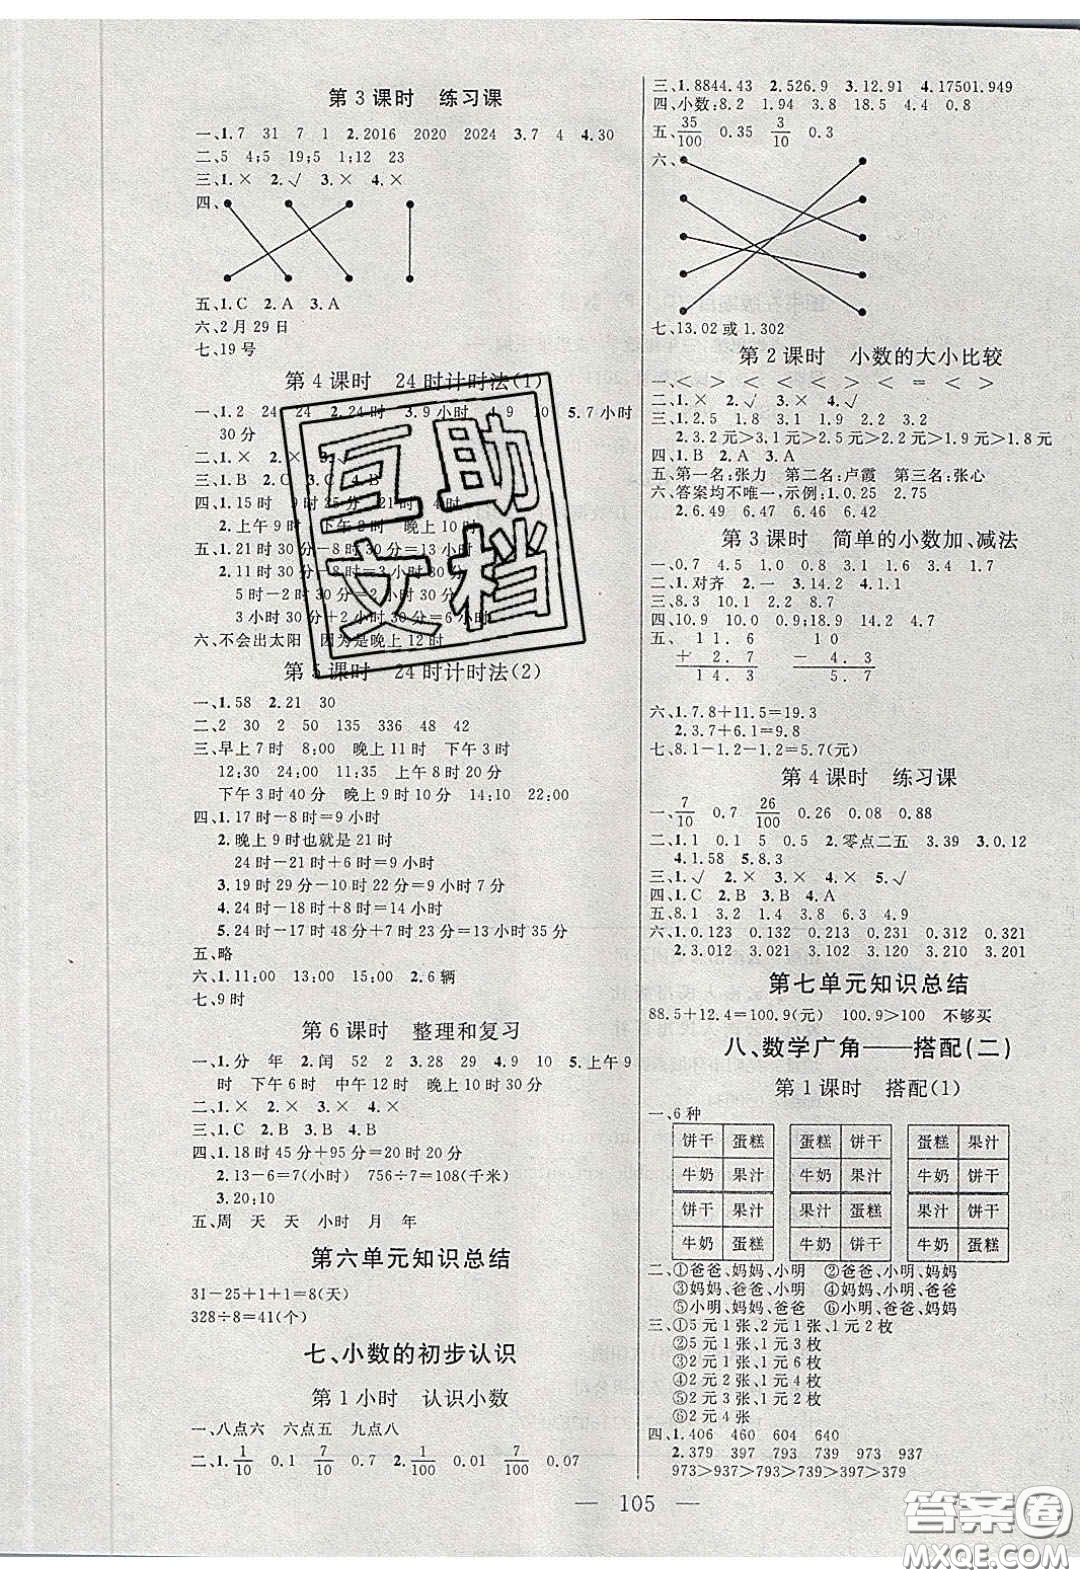 第3课时　练习课
一、1.7　31　7　1　2.2016　2020　2024　3.7　4　4.30
二、5　4;5　19;5　1;12　23
三、1.×　2.√　3.×　4.×
四、
五、1.C　2.A　3.A
六、2月29日
七、19号
第4课时　24时计时法(1)
一、1.2　24　24　2.24时　3.9小时　4.9　10　5.7小时
30分
二、1.×　2.√
三、1.B　2.C　3.C　4.B
四、1.15时　9时25分　21时　4时
2.上午9时　下午2时　晚上10时
五、1.21时30分－8时30分＝13小时
2.11时30分－8时＝3小时30分
5时－2时30分＝2小时30分
3小时30分＋2小时30分＝6小时
六、不会出太阳　因为是晚上12时
第5课时　24时计时法(2)
一、1.58　2.21　30
二、2　30　2　50　135　336　48　42
三、早上7时　8:00　晚上11时　下午3时
12:30　24:00　11:35　上午8时20分
下午3时40分　晚上9时10分　14:10　22:00
四、1.17时－8时＝9小时
2.晚上9时也就是21时
24时－21时＋6时＝9小时
3.19时29分－10时＝9时29分
4.24时－18时＋8时＝14小时
5.24时－17时48分＋7时23分＝13小时35分
五、略
六、1.11:00　13:00　15:00　2.6辆
七、9时
第6课时　整理和复习
一、1.分　年　2.闰　52　2　3.28　29　4.9　10　5.上午9
时　下午6时　中午12时　晚上10时
二、1.×　2.×　3.×　4.×
三、1.C　2.B　3.B　4.B
四、1.18时45分＋95分＝20时20分
2.13－6＝7(小时)　756÷7＝108(千米)
3.20:10
五、周　天　天　小时　月　年
第六单元知识总结
31－25＋1＋1＝8(天)
328÷8＝41(个)
七、小数的初步认识
第1小时　认识小数
一、八点六　六点五　九点八
二、1.1/10　0.1　7/10　0.7　2.1/100　0.01　7/100　0.07
三、1.8844.43　2.526.9　3.12.91　4.17501.949
四、小数:8.2　1.94　3.8　18.5　4.4　0.8
五、35/100　0.35　3/10　0.3
六、
七、13.02或1.302
第2课时　小数的大小比较
一、＜　＞　＜　＞　＜　＜　＝　＜　＞
二、1.×　2.√　3.×　4.√
三、1.2.5　1.8　3.1　1.9　2.2　3.2
2.3.2元＞3.1元＞2.5元＞2.2元＞1.9元＞1.8元
四、1.B　2.A　3.A
五、第一名:张力　第二名:卢霞　第三名:张心
六、答案均不唯一,示例:1.0.25　2.75
2.6.49　6.47　6.46　6.42
第3课时　简单的小数加、减法
一、0.7　4.5　1.0　0.1　3.6　3.4　1.7
二、1.对齐　2.一　3.14.2　4.1.1
三、8.3　10.1　2.2　8.7
四、10.9　10.0　2.9　18.9　14.2　4.7
五、　11.6　　10
＋　2.7　－　4.3
14.3　　5.7
六、1.7.8＋11.5＝19.3
2.3.7＋6.1＝9.8
七、8.1－1.2－1.2＝5.7(元)
第4课时　练习课
一、7/10　0.7　26/100　0.26　0.08　0.88
二、1.1　0.1　5　0.5　2.零点二五　3.39　3.0.12
4.1.58　5.8.3
三、1.√　2.×　3.×　4.×　5.√
四、1.C　2.B　3.B　4.A
五、8.1　3.2　2.9　6.3　4.9
六、1.0.123　0.132　0.213　0.231　0.312　0.321
2.3.012　3.021　3.102　3.120　3.210　3.201
第七单元知识总结
88.5＋12.4＝100.9(元)　100.9＞100　不够买
八、数学广角——搭配(二)
第1课时　搭配(1)
一、6种
饼干　蛋糕　蛋糕　饼干　蛋糕　果汁
牛奶　果汁　牛奶　果汁　牛奶　饼干
饼干　果汁　果汁　蛋糕　果汁　饼干
牛奶　蛋糕　牛奶　饼干　牛奶　蛋糕
二、①爸爸、妈妈、小明　②爸爸、小明、妈妈
③妈妈、爸爸、小明　④妈妈、小明、爸爸
⑤小明、妈妈、爸爸　⑥小明、爸爸、妈妈
三、①5元1张、2元1张、1元2枚
②5元1张、1元4枚
③2元1张、1元6枚
④2元2张、1元4枚
⑤2元3张、1元2枚
⑥2元4张
四、1.406　460　604　640
2.379　397　793　739　973　937
973＞937＞793＞739＞397＞379
105
互助
文档
答案圈
MXQE.COM